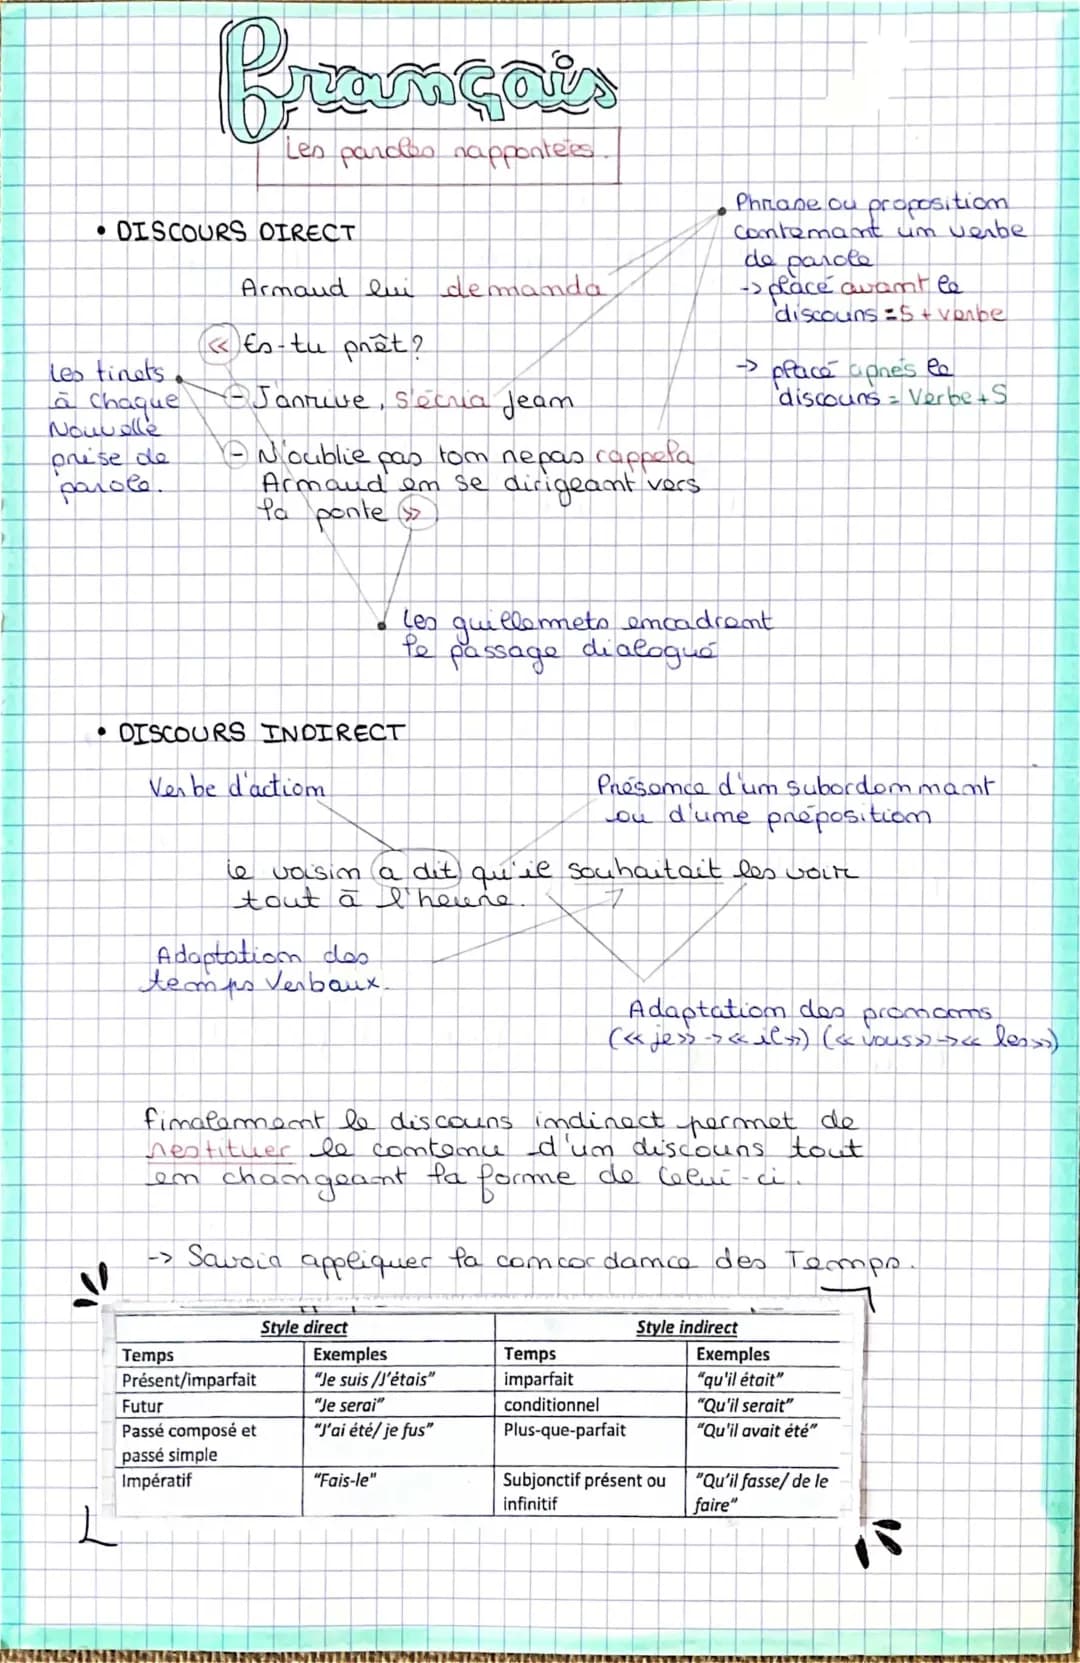 Français
Les paroles rapportées.
• DISCOURS DIRECT
Phrase ou proposition
contenant un verbe
de parole
-> placé avant le
discours = S + verbe
-> placé après le
discours = Verbe + S
Armand lui demanda
« Es-tu prêt ?
- J'arrive, s'écria Jean
- N'oublie pas ton repas rappela
Armand en se dirigeant vers
la porte »
Les tirets
à chaque
Nouvelle
prise de
parole.
Les guillemets encadrent
le passage dialogué
• DISCOURS INDIRECT
Verbe d'action
Présence d'un subordonnant
ou d'une préposition
le voisin a dit qu'il souhaitait les voir
tout à l'heure.
Adaptation des
temps Verbaux.
Adaptation des pronoms
(« je » -> « il ») (« vous » -> « les »)
finalement le discours indirect permet de
restituer le contenu d'un discours tout
en changeant la forme de celui-ci.
-> Savoir appliquer la concordance des Temps.
Style direct Style indirect
Temps Exemples Temps Exemples
Présent/imparfait "Je suis /J'étais" imparfait "qu'il était"
Futur "Je serai" conditionnel "Qu'il serait"
Passé composé et "J'ai été/ je fus" Plus-que-parfait "Qu'il avait été"
passé simple
Impératif "Fais-le" Subjonctif présent ou "Qu'il fasse/ de le
infinitif faire"